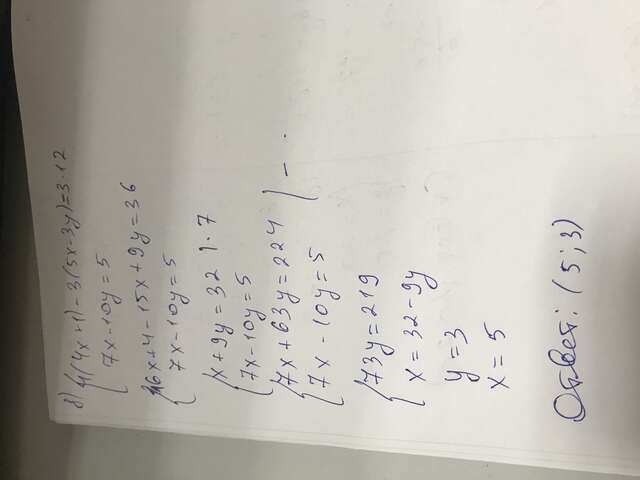 б) { 4(4x+1)-3(5x-3y)=3·12
7x-10y=5
{ 16x+4-15x+9y=36
7x-10y=5
{ x+9y=32 | · 7
7x-10y=5
{ 7x+63y=224 | -
7x-10y=5
{ 73y=219
x=32-9y
y=3
x=5
Ответ: (5;3)